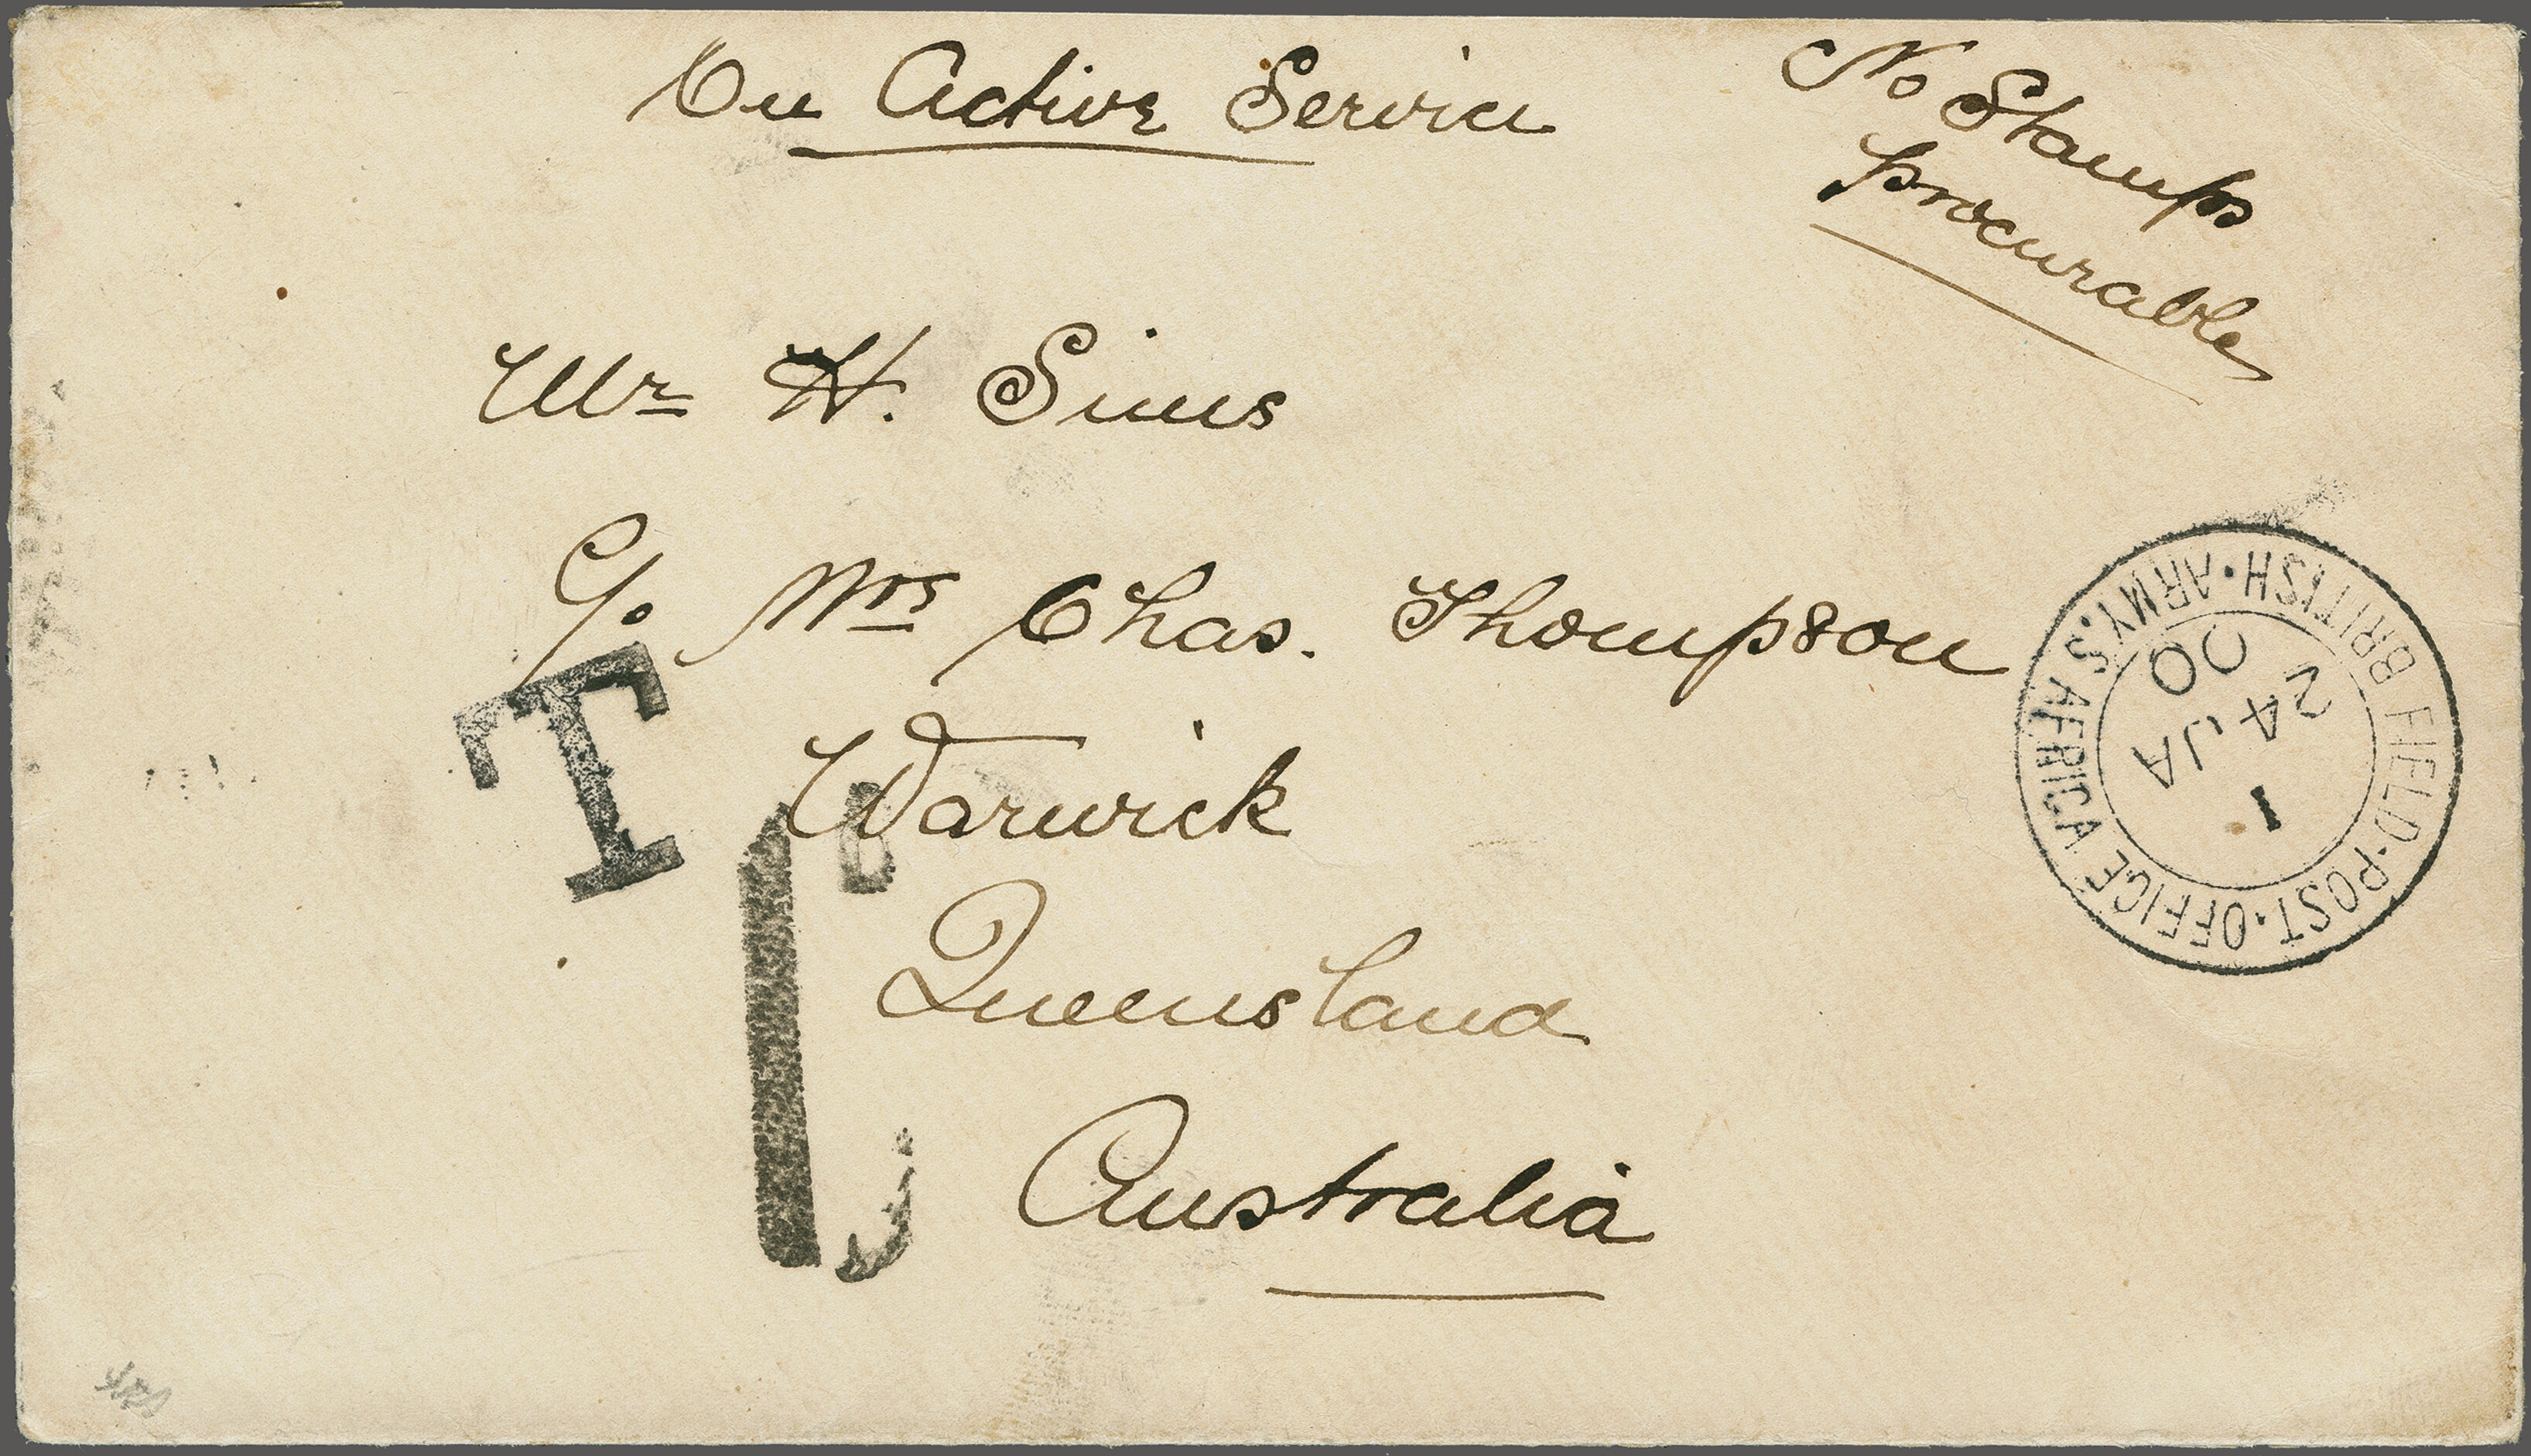 On Active Service
No Stamps
procurable
Mr H. Sims
C/o Mrs Chas. Thompson
Warwick
Queensland
Australia
T
BRITISH·ARMY.S.AFRICA
FIELD·POST·OFFICE
1
24 JA
00